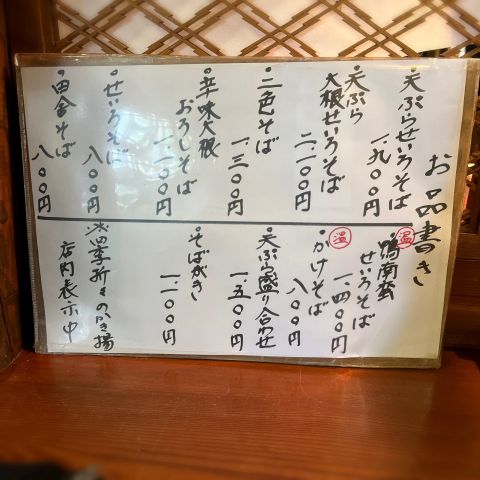 お品書き
・天ぷらせいろそば
一.九〇〇円
・天ぷら
大根せいろそば
二.一〇〇円
・二色そば
一.三〇〇円
・辛味大根
おろしそば
一.一〇〇円
・せいろそば
八〇〇円
・田舎そば
八〇〇円
温
・鴨南蛮
せいろそば
一.四〇〇円
温
・かけそば
八〇〇円
・天ぷら盛り合わせ
一.五〇〇円
・そばがき
一.一〇〇円
※四季折々のかき揚
店内表示中